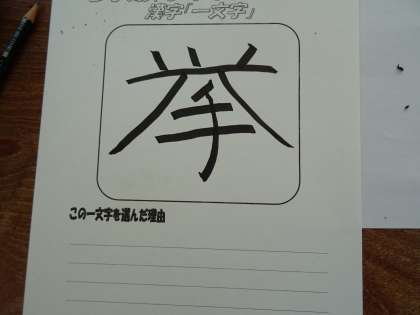 漢字「一文字」
挙
この一文字を選んだ理由